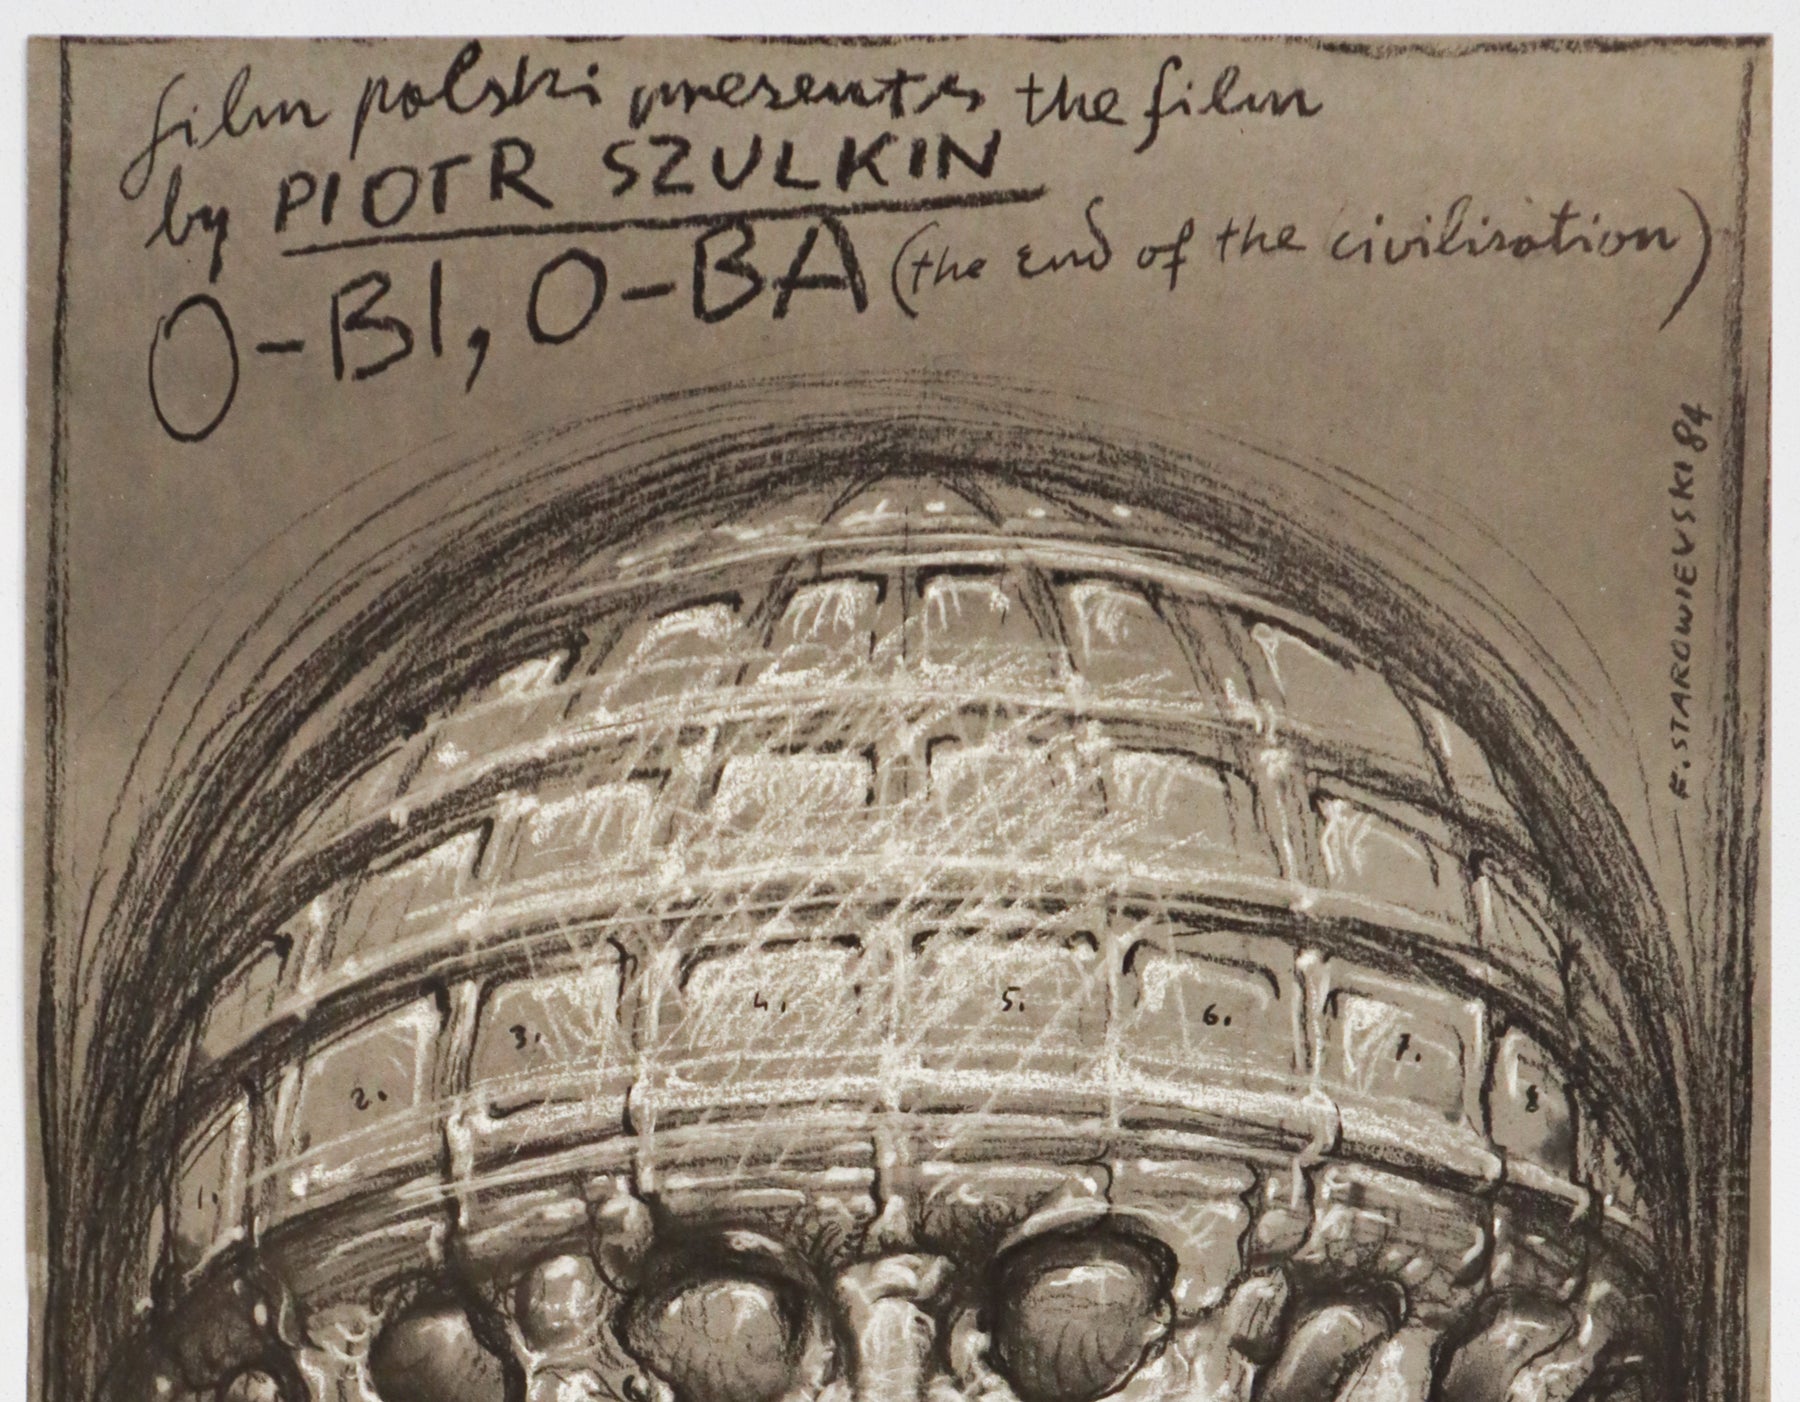 film polski presents the film
by PIOTR SZULKIN
O-BI, O-BA (the end of the civilisation)
F. STAROWIEYSKI 84
1. 2. 3. 4. 5. 6. 7. 8